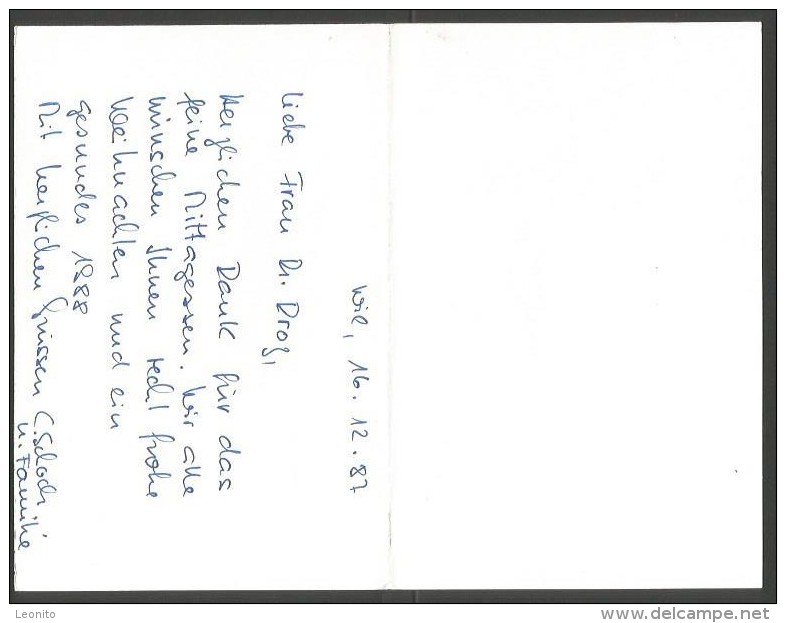 Wil, 16. 12. 87
Liebe Frau Dr. Drog,
Herzlichen Dank für das
feine Mittagessen. Wir alle
wünschen Ihnen recht frohe
Weihnachten und ein
gesundes 1988
Mit herzlichen Grüssen C. Schoch
u. Familie
Leonito
www.delcampe.net